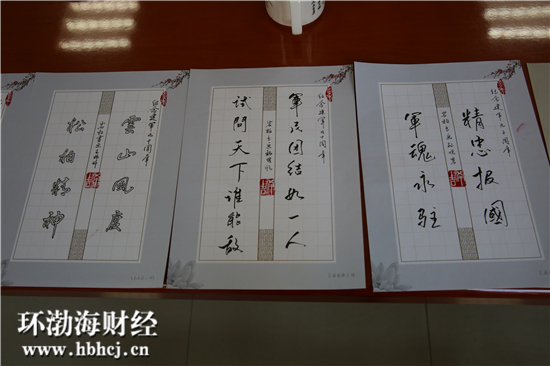 纪念建軍九十周年
雲山風度
松柏精神
纪念建軍九十周年
軍民团结如一人
试问天下谁能敌
纪念建軍九十周年
精忠报國
軍魂永駐
环渤海财经
www.hbhcj.cn